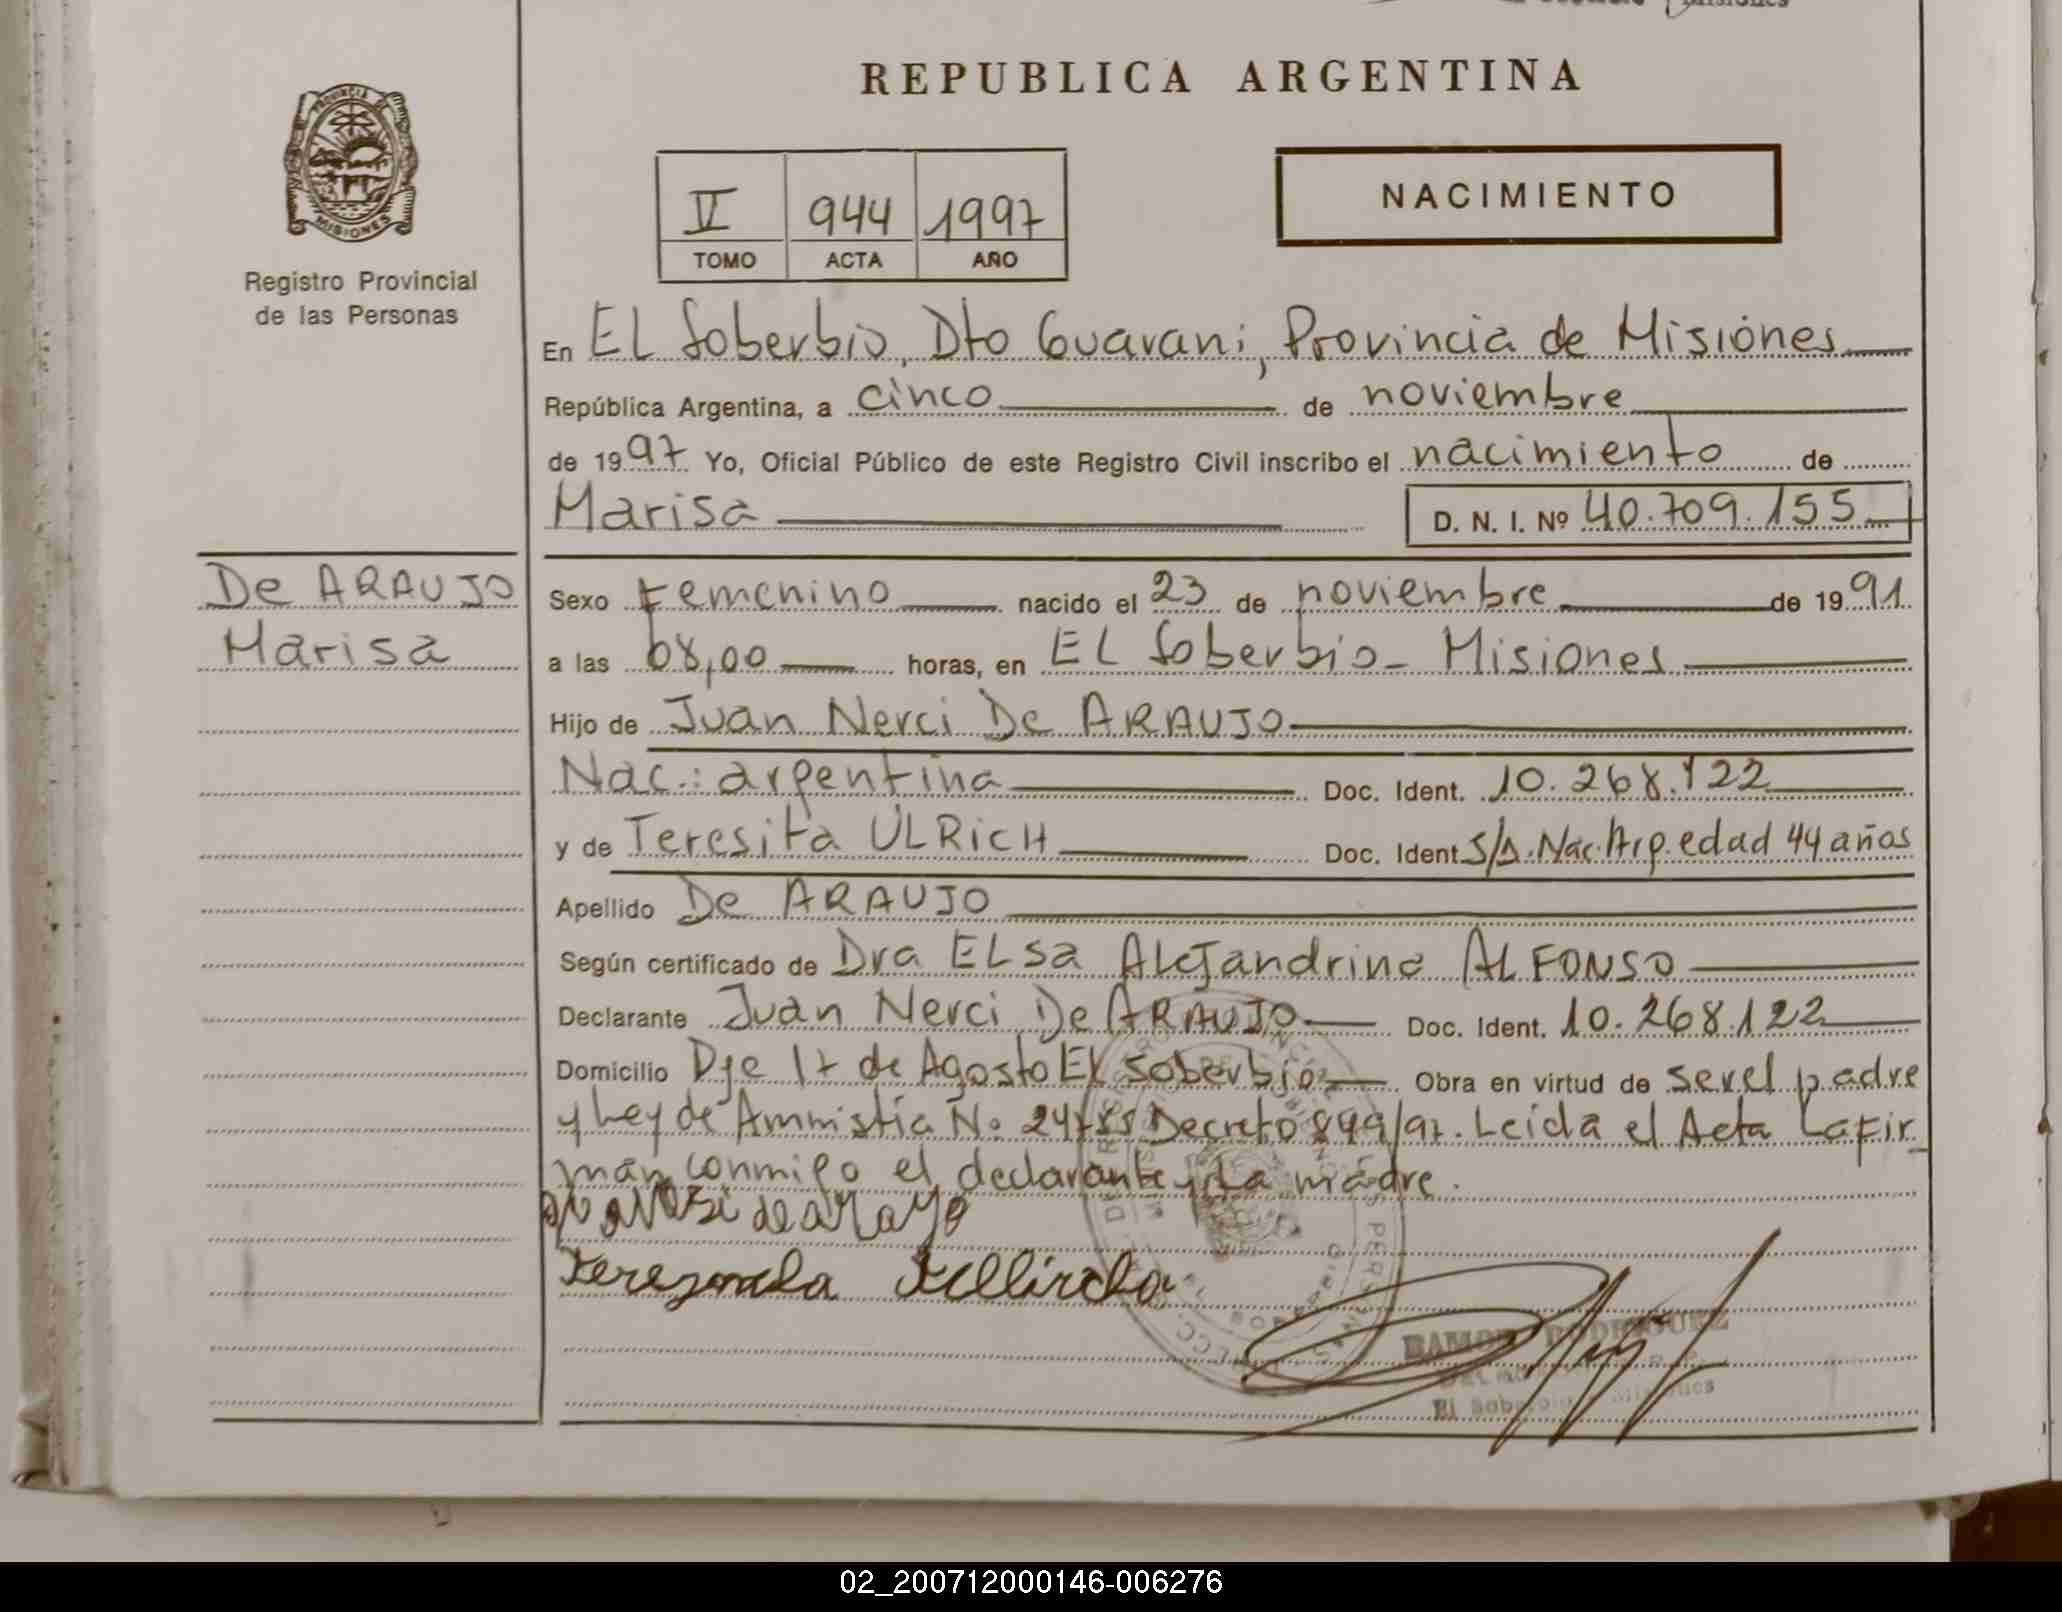 REPUBLICA ARGENTINA
PROVINCIA DE
MISIONES
Registro Provincial
de las Personas
IV 944 1997
TOMO ACTA AÑO
NACIMIENTO
En EL Soberbio, Dto Guarani, Provincia de Misiones
República Argentina, a cinco de noviembre
de 1997 Yo, Oficial Público de este Registro Civil inscribo el nacimiento de
Marisa D. N. I. Nº 40.709.155
De ARAUJO
Marisa
Sexo Femenino nacido el 23 de noviembre de 1991
a las 08,00 horas, en EL Soberbio - Misiones
Hijo de Juan Nerci De ARAUJO
Nac.: argentina Doc. Ident. 10.268.122
y de Teresita ULRICH Doc. Ident S/D. Nac. Arg. edad 44 años
Apellido De ARAUJO
Según certificado de Dra ELSa Alejandrina ALFONSO
Declarante Juan Nerci De ARAUJO Doc. Ident. 10.268.122
Domicilio Dje 17 de Agosto El Soberbio Obra en virtud de ser el padre
y Ley de Amnistia No 24755 Decreto 849/97. Leida el Acta La fir
man conmigo el declarante y La madre.
RAMON RODRIGUEZ
El Soberbio Misiones
02_200712000146-006276